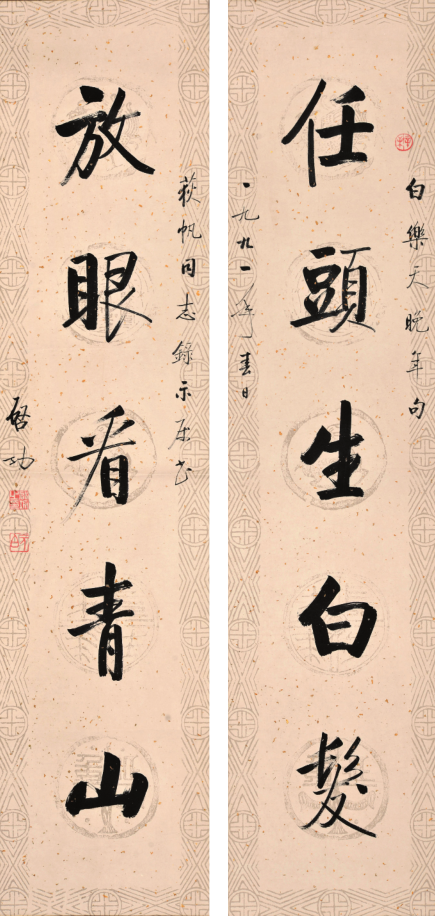 白樂天晚年句
任頭生白髮
一九九一年春日
荻帆同志錄示屬書
放眼看青山
啓功